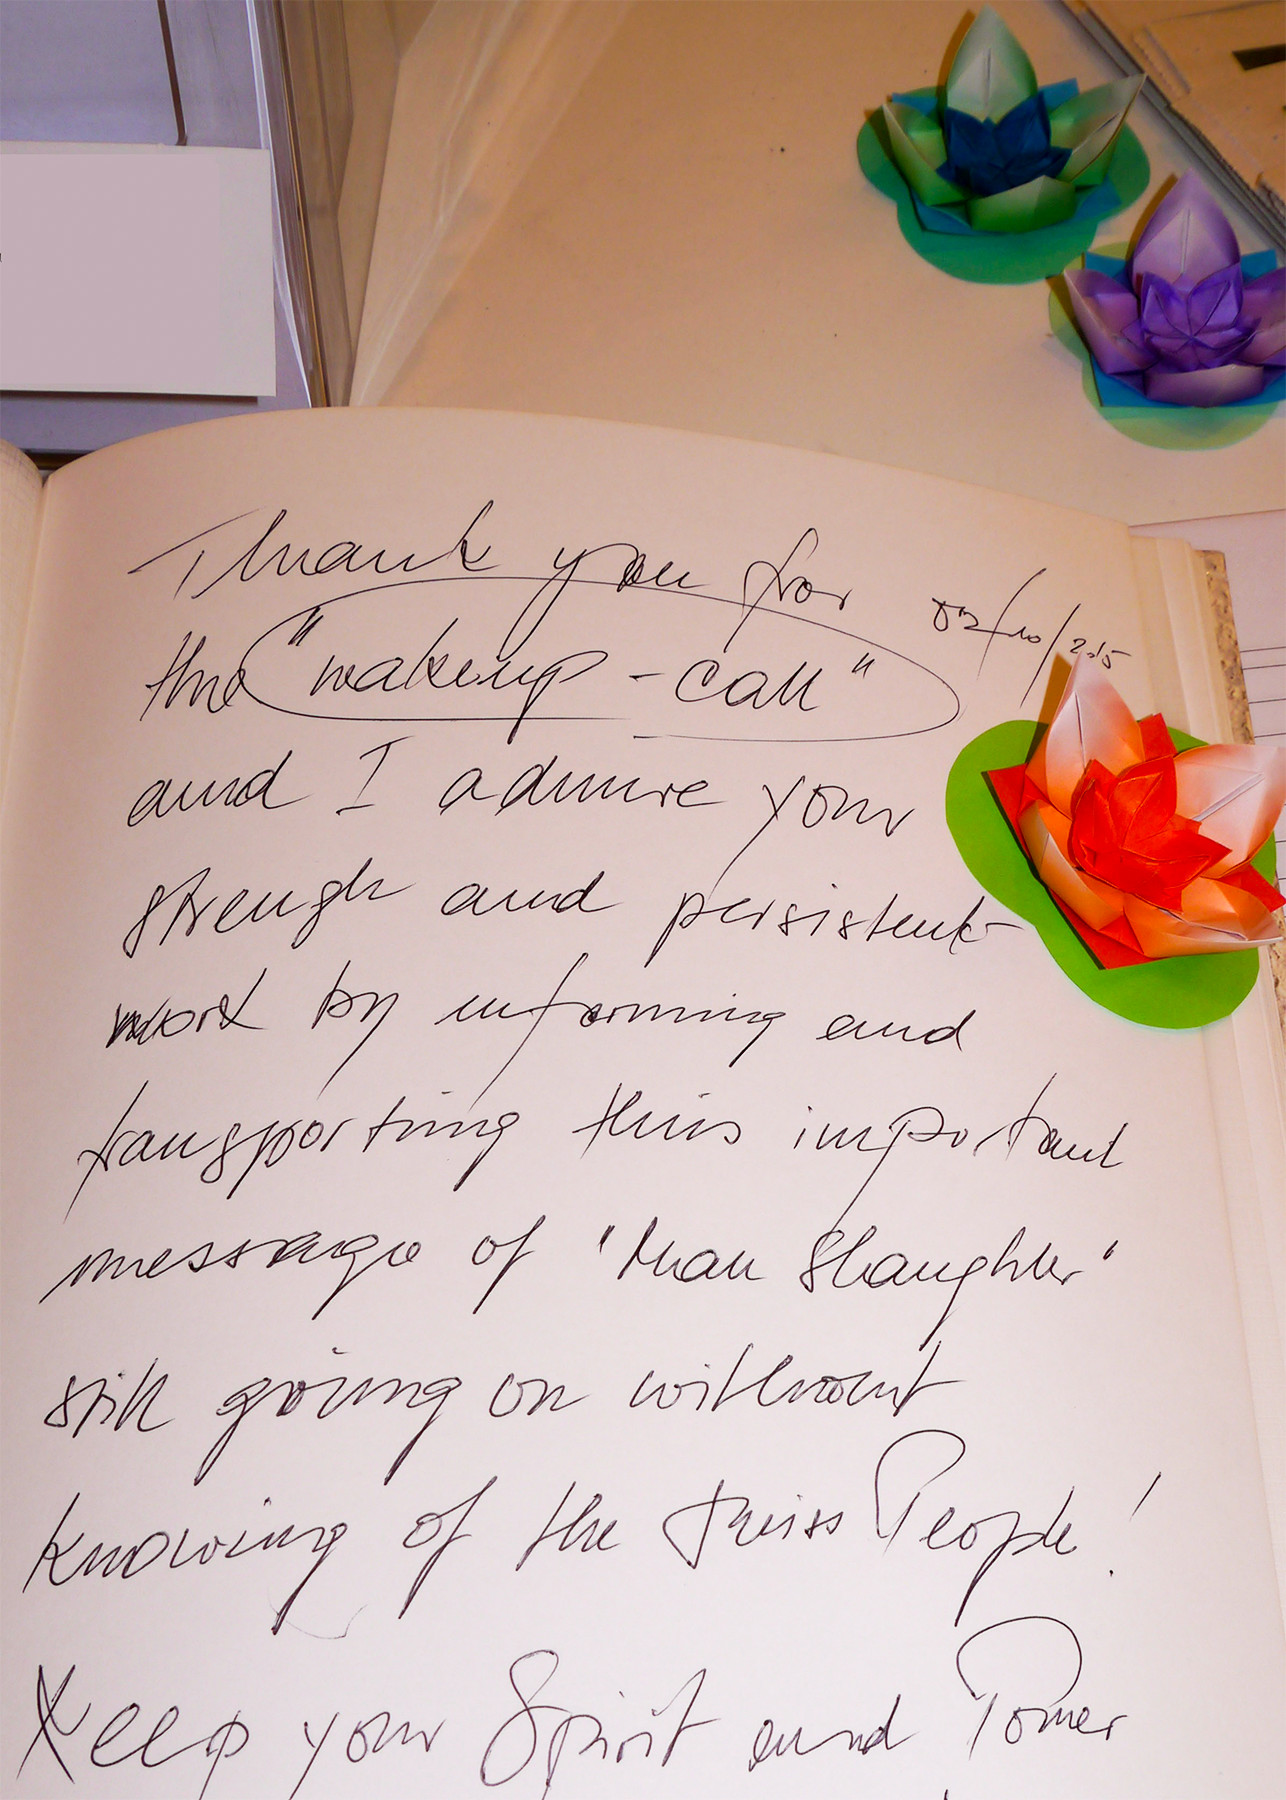 Thank you for
02/10/2015
the "wakeup - call"
and I admire your
strengh and persistent
work by informing and
transporting this important
message of "Man Slaughter"
still going on without
knowing of the Swiss People!
Keep your Spirit and Power